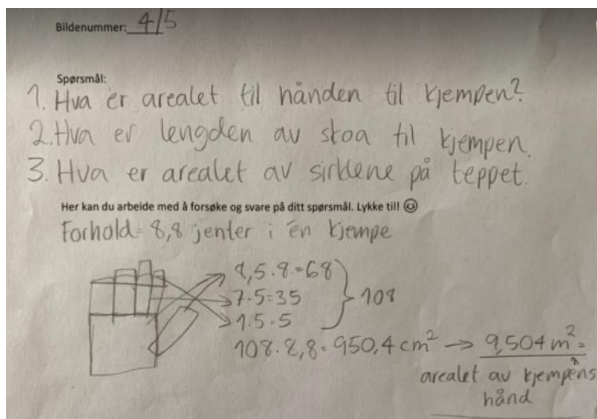 Bildenummer: 4/5
Spørsmål:
1. Hva er arealet til hånden til kjempen?
2. Hva er lengden av skoa til kjempen.
3. Hva er arealet av sirklene på teppet.
Her kan du arbeide med å forsøke og svare på ditt spørsmål. Lykke til! ☺
Forhold= 8,8 jenter i én kjempe
8,5·8=68
7·5=35
1·5=5
108
108·8,8=950,4 cm² → 9,504 m² =
arealet av kjempens
hånd